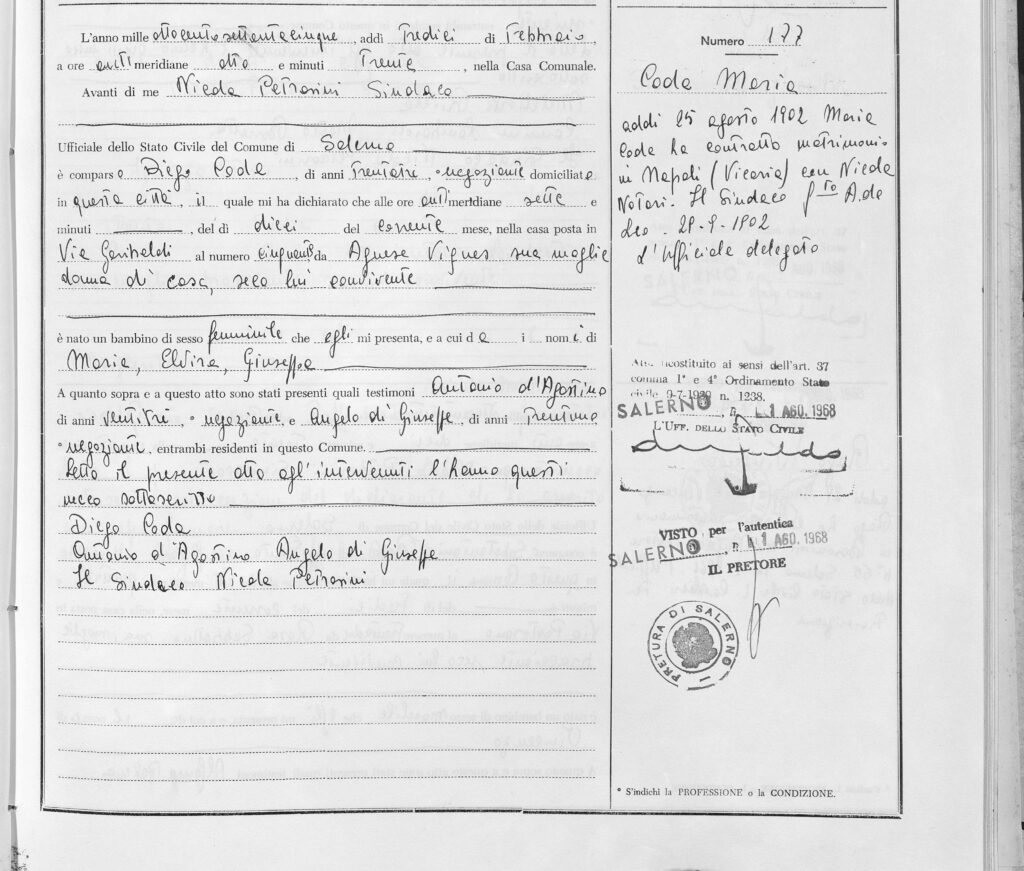 L'anno mille ottocentosettantacinque, addì Tredici di Febbraio,
a ore antimeridiane otto e minuti Trenta, nella Casa Comunale.
Avanti di me Nicola Petrosini Sindaco
Ufficiale dello Stato Civile del Comune di Salerno
è comparso Diego Coda, di anni Trentatré, ° negoziante domiciliato
in questa città, il quale mi ha dichiarato che alle ore antimeridiane sette e
minuti , del dì dieci del corrente mese, nella casa posta in
Via Garibaldi al numero cinquanta da Agnese Vignes sua moglie
donna di casa, seco lui convivente
è nato un bambino di sesso femminile che egli mi presenta, e a cui dà i nomi di
Maria, Elvira, Giuseppa
A quanto sopra e a questo atto sono stati presenti quali testimoni Antonio d'Agostino
di anni ventitré, ° negoziante, e Angelo di Giuseppe, di anni Trentuno
° negoziante, entrambi residenti in questo Comune.
Letto il presente atto agl'intervenuti l'hanno questi
meco sottoscritto
Diego Coda
Antonio d'Agostino Angelo di Giuseppe
Il Sindaco Nicola Petrosini
Numero 177
Coda Maria
addì 25 agosto 1902 Maria
Coda ha contratto matrimonio
in Napoli (Vicaria) con Nicola
Notari. Il Sindaco
29-9-1902
L'Ufficiale delegato
ricostituito ai sensi dell'art. 37
comma 1° e 4° Ordinamento Stato
civile 9-7-1939 n. 1238.
SALERNO 1 AGO. 1968
L'UFF. DELLO STATO CIVILE
VISTO per l'autentica
SALERNO 1 AGO. 1968
IL PRETORE
PRETURA DI SALERNO
° S'indichi la PROFESSIONE o la CONDIZIONE.